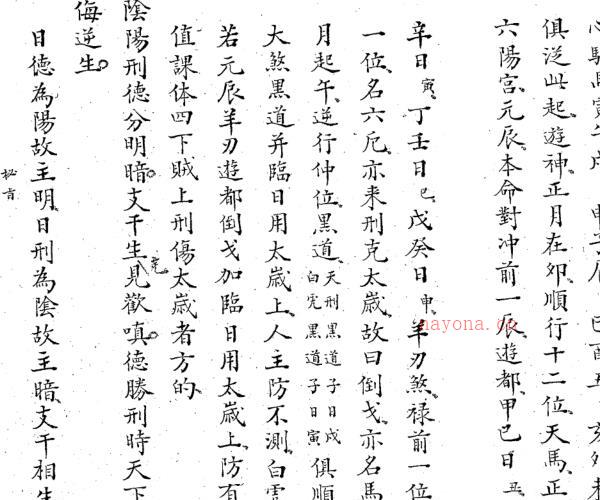 俱從此起遊神正月在卯順行十二位天馬正
六陽宮元辰本命對冲前一辰遊都甲己日丑
辛日寅丁壬日巳戊癸日申羊刃煞祿前一位
一位名六厄亦来刑克太歲故曰倒戈亦名馬
月起午逆行仲位黑道天刑黑道子日戌白虎黑道子日寅俱順
大煞黑道并臨日用太歲上人主防不測白雲
若元辰羊刃遊都倒戈加臨日用太歲上防有
值課体四下賊上刑傷太歲者方的
陰陽刑德分明暗支干生見歡嗔德勝刑時天下
侮逆生
日德為陽故主明日刑為陰故主暗支干相生
nayona.cn